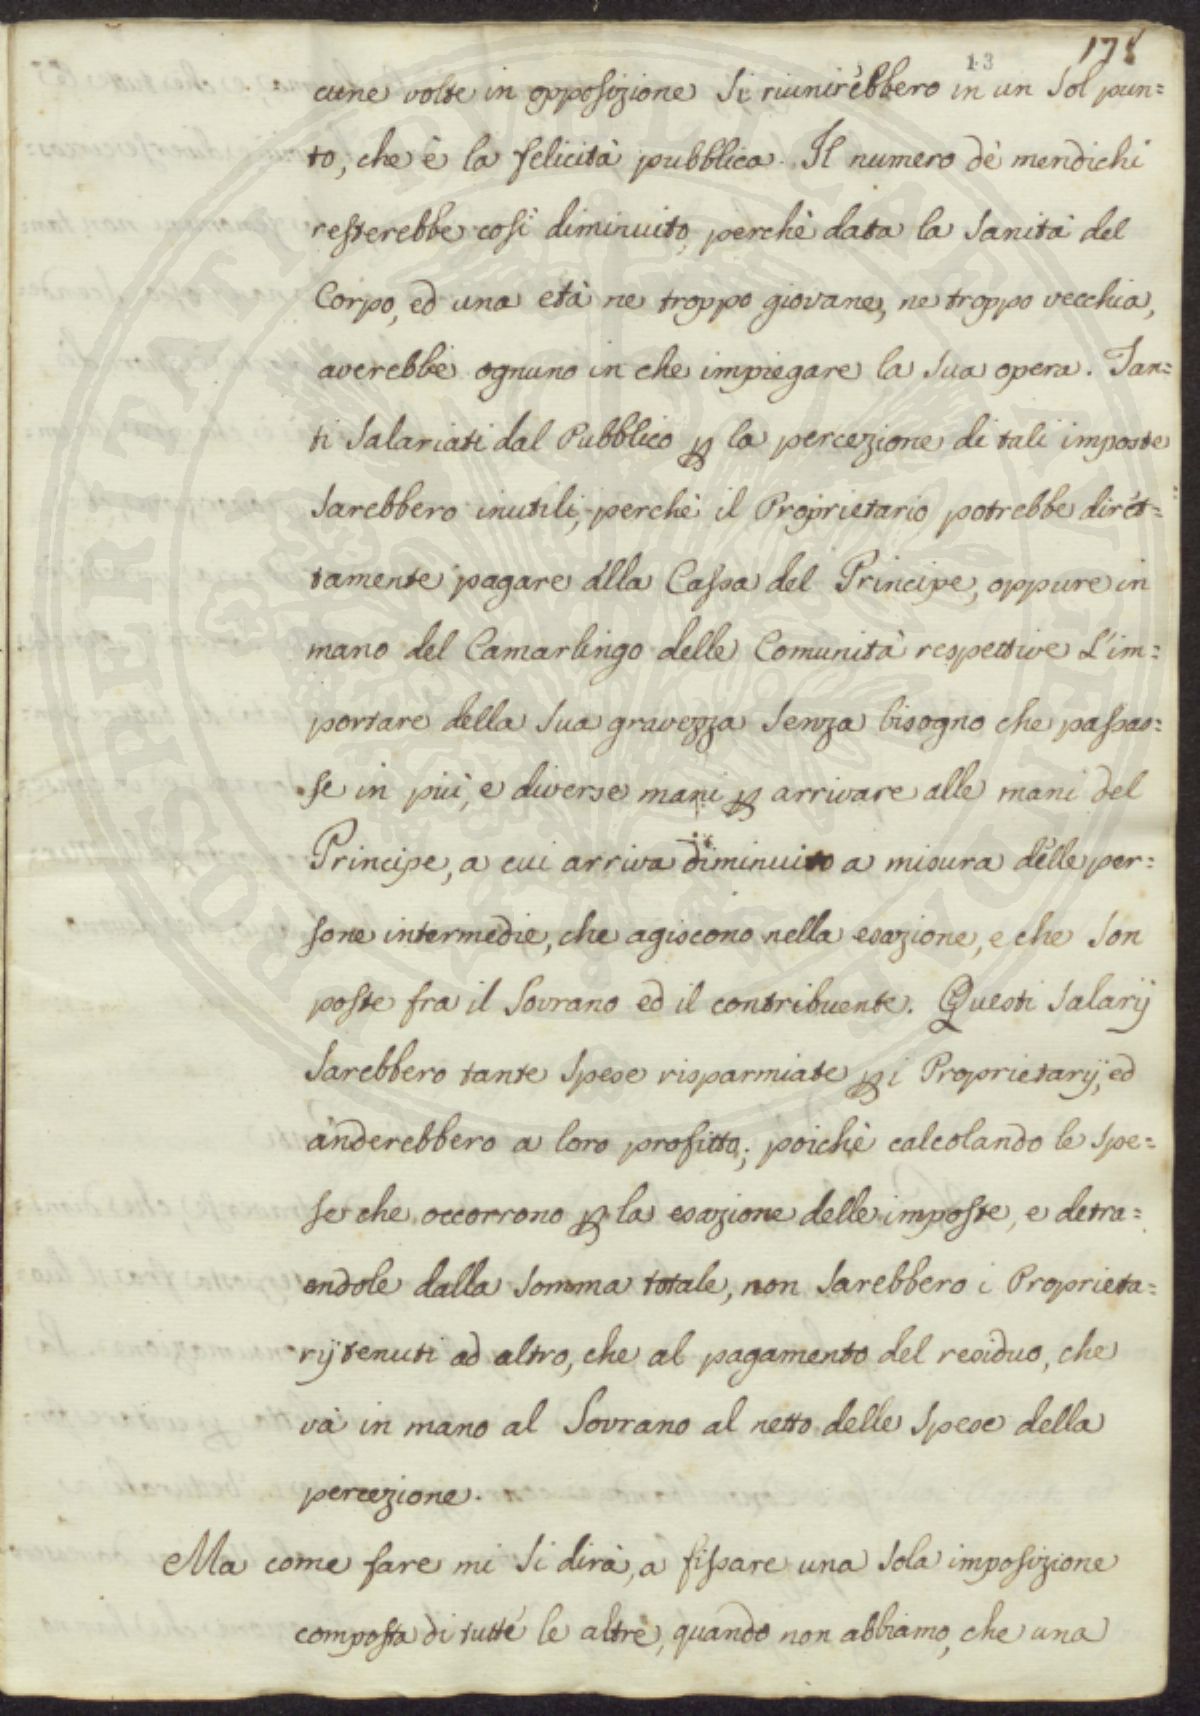 178
13
cune volte in opposizione si riunirebbero in un sol pun=
to, che è la felicità pubblica. Il numero dè mendichi
resterebbe così diminuito, perchè data la sanità del
Corpo, ed una età ne troppo giovane, ne troppo vecchia,
averebbe ognuno in che impiegare la sua opera. Tan=
ti Salariati dal Pubblico ꝑ la percezione di tali imposte
sarebbero inutili, perchè il Proprietario potrebbe diret=
tamente pagare alla Cassa del Principe, oppure in
mano del Camarlingo delle Comunità respettive l'im=
portare della sua gravezza senza bisogno che passas=
se in più, e diverse mani ꝑ arrivare alle mani del
Principe, a cui arriva diminuito a misura delle per=
sone intermedie, che agiscono nella esazione, e che son
poste fra il Sovrano ed il contribuente. Questi Salarij
sarebbero tante spese risparmiate ꝑ i Proprietarij, ed
anderebbero a loro profitto; poichè calcolando le spe=
se che occorrono ꝑ la esazione delle imposte, e detra=
endole dalla somma totale, non sarebbero i Proprieta=
rij tenuti ad altro, che al pagamento del residuo, che
và in mano al Sovrano al netto delle spese della
percezione.
Ma come fare mi si dirà, a fissare una sola imposizione
composta di tutte le altre, quando non abbiamo, che una
PROSPERITATI PUBLICAE AUGENDAE